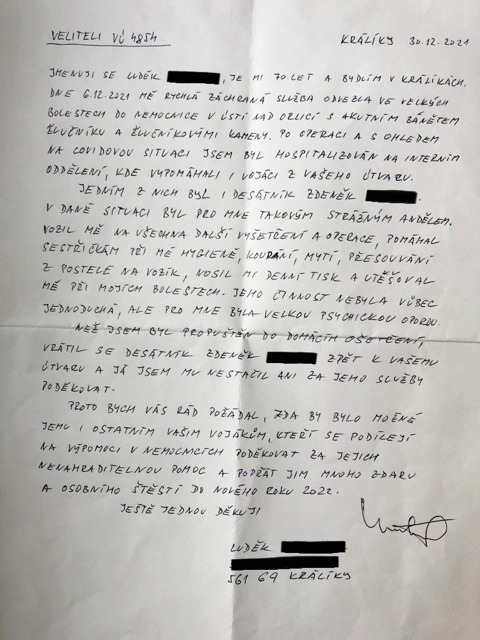 VELITELI VÚ 4854 KRÁLÍKY 30.12.2021
JMENUJI SE LUDĚK , JE MI 70 LET A BYDLÍM V KRÁLÍKÁCH.
DNE 6.12.2021 MĚ RYCHLÁ ZÁCHRANÁ SLUŽBA ODVEZLA VE VELKÝCH
BOLESTECH DO NEMOCNICE V ÚSTÍ NAD ORLICÍ S AKUTNÍM ZÁNĚTEM
ŽLUČNÍKU A ŽLUČNÍKOVÝMI KAMENY. PO OPERACI A S OHLEDEM
NA COVIDOVOU SITUACI JSEM BYL HOSPITALIZOVÁN NA INTERNÍM
ODDĚLENÍ, KDE VYPOMÁHALI I VOJÁCI Z VAŠEHO ÚTVARU.
JEDNÍM Z NICH BYL I DESÁTNÍK ZDENĚK .
V DANÉ SITUACI BYL PRO MNE TAKOVÝM STRÁŽNÝM ANDĚLEM.
VOZIL MĚ NA VŠECHNA DALŠÍ VYŠETŘENÍ A OPERACE, POMÁHAL
SESTŘIČKÁM PŘI MÉ HYGIENĚ, KOUPÁNÍ, MYTÍ, PŘESOUVÁNÍ
Z POSTELE NA VOZÍK, NOSIL MI DENNÍ TISK A UTĚŠOVAL
MĚ PŘI MOJÍCH BOLESTECH. JEHO ČINNOST NEBYLA VŮBEC
JEDNODUCHÁ, ALE PRO MNE BYLA VELKOU PSYCHICKOU OPOROU.
NEŽ JSEM BYL PROPUŠTĚN DO DOMÁCÍM OŠETŘENÍ,
VRÁTIL SE DESÁTNÍK ZDENĚK ZPĚT K VAŠEMU
ÚTVARU A JÁ JSEM MU NESTAČIL ANI ZA JEHO SLUŽBY
PODĚKOVAT.
PROTO BYCH VÁS RÁD POŽÁDAL, ZDA BY BYLO MOŽNÉ
JEMU I OSTATNÍM VAŠIM VOJÁKŮM, KTEŘÍ SE PODÍLEJÍ
NA VÝPOMOCI V NEMOCNICÍCH PODĚKOVAT ZA JEJICH
NENAHRADITELNOU POMOC A POPŘÁT JIM MNOHO ZDARU
A OSOBNÍHO ŠTĚSTÍ DO NOVÉHO ROKU 2022.
JEŠTĚ JEDNOU DĚKUJI
LUDĚK
561 69 KRÁLÍKY